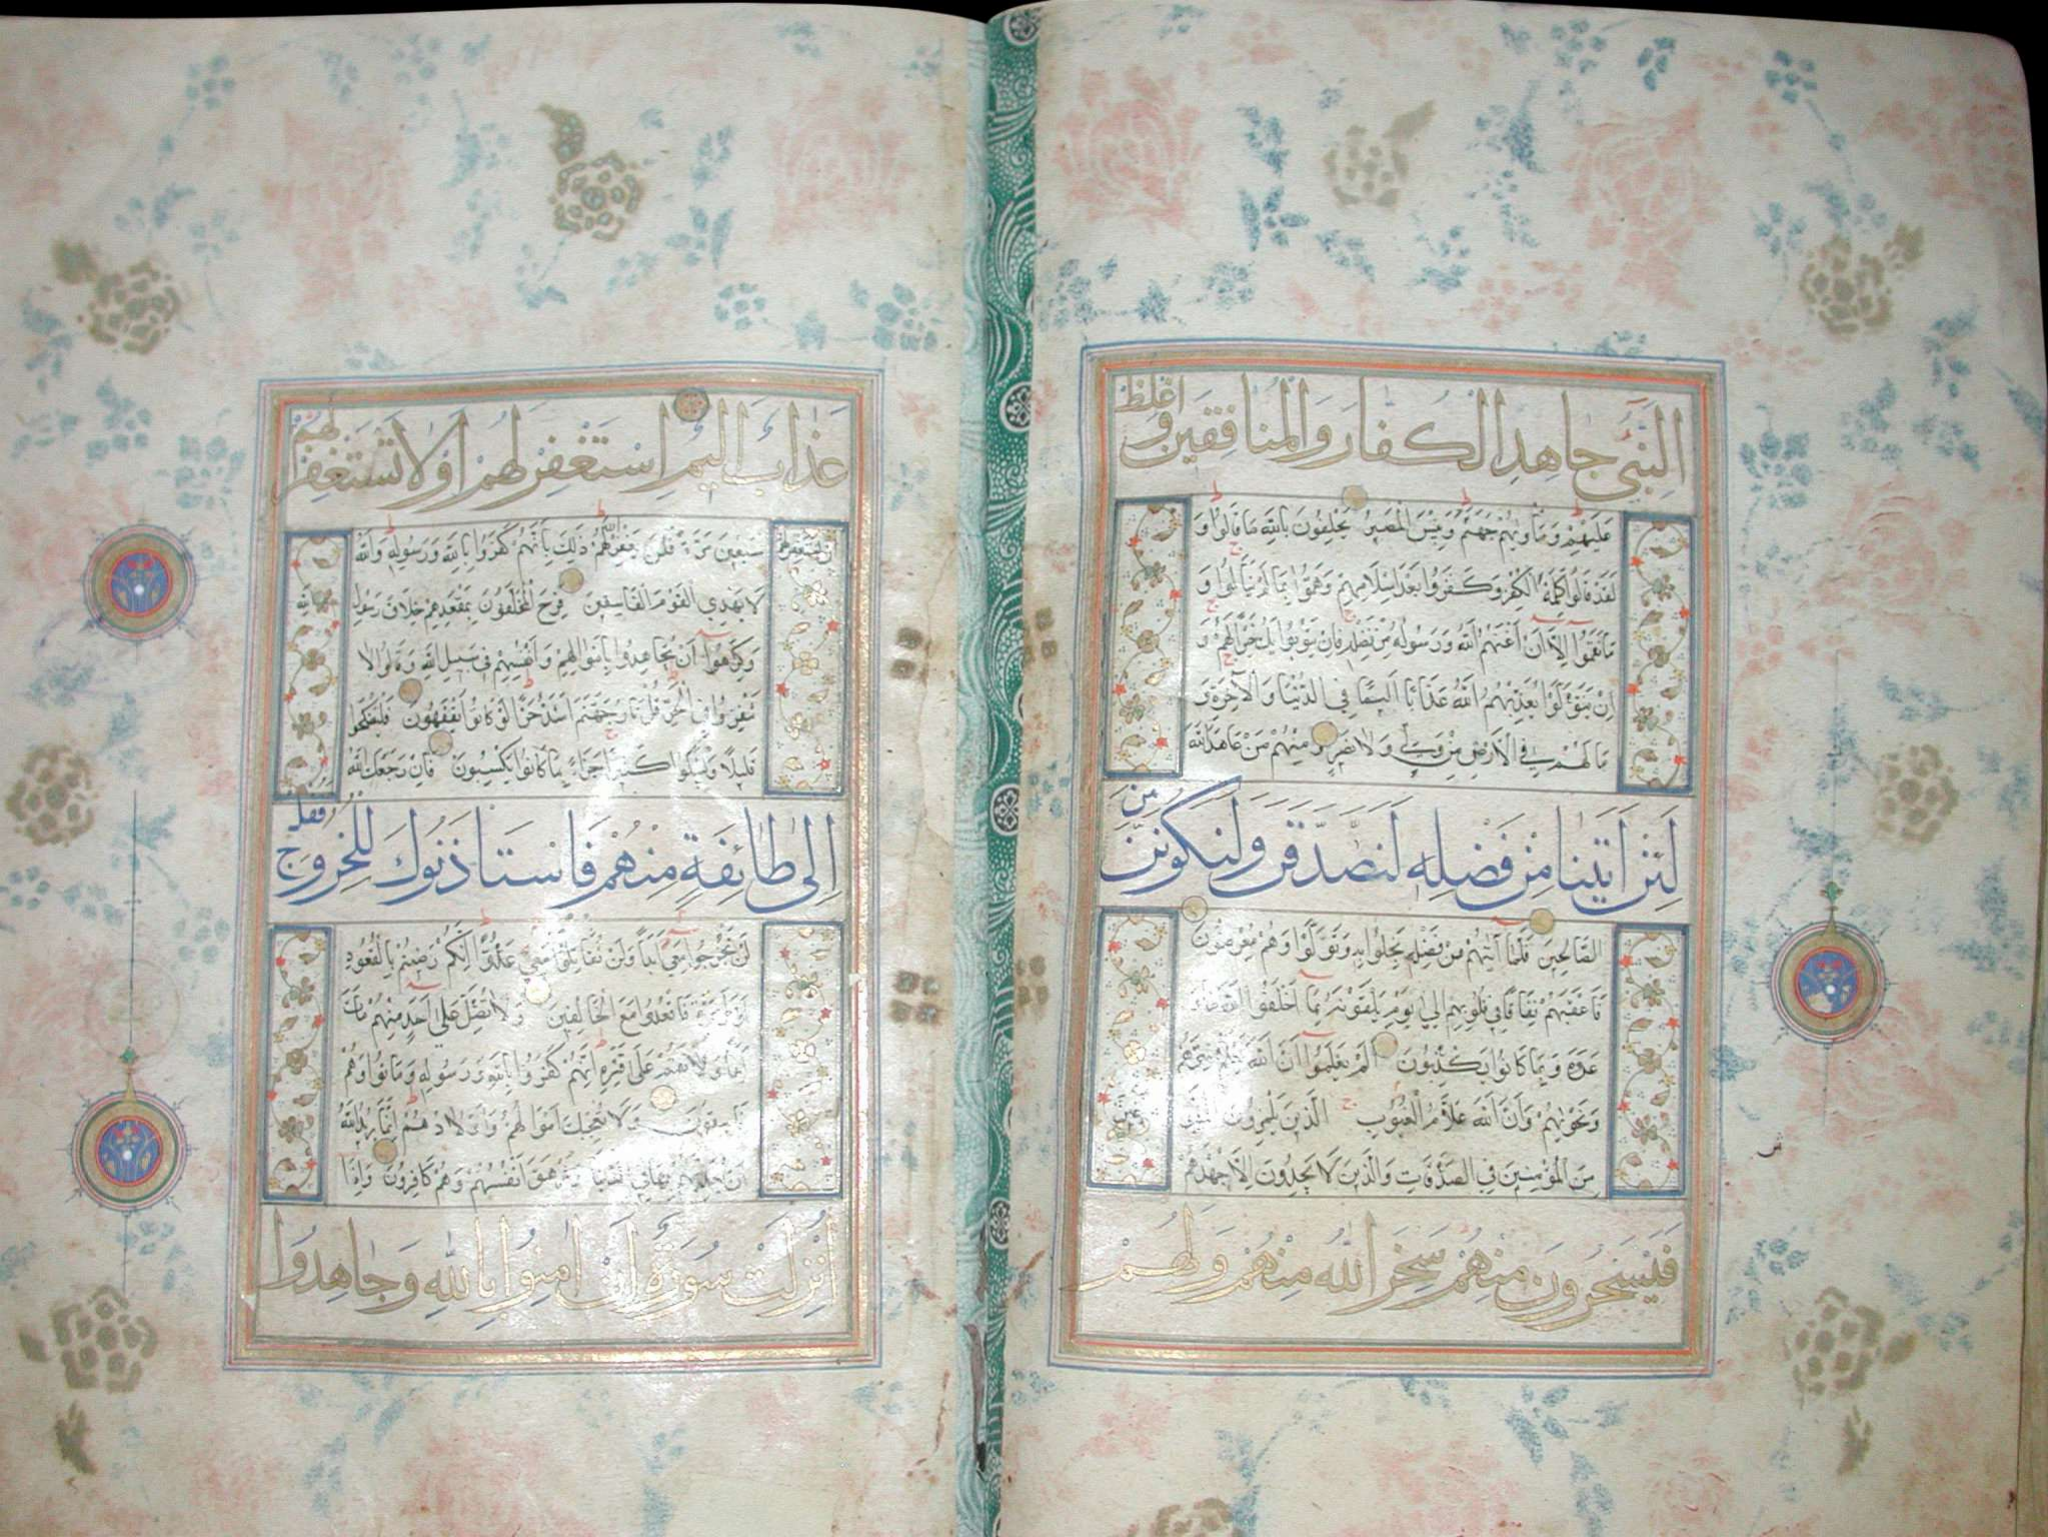 النَّبِيُّ جَاهِدِ الْكُفَّارَ وَالْمُنَافِقِينَ وَاغْلُظْ
عَلَيْهِمْ وَمَاْوٰيهُمْ جَهَنَّمُ وَبِئْسَ الْمَصِيرُ يَحْلِفُونَ بِاللّٰهِ مَا قَالُوا وَ
لَقَدْ قَالُوا كَلِمَةَ الْكُفْرِ وَكَفَرُوا بَعْدَ اِسْلَامِهِمْ وَهَمُّوا بِمَا لَمْ يَنَالُوا وَ
مَا نَقَمُوا اِلَّا اَنْ اَغْنٰيهُمُ اللّٰهُ وَرَسُولُهُ مِنْ فَضْلِهِ فَاِنْ يَتُوبُوا يَكُ خَيْرًا لَهُمْ وَ
اِنْ يَتَوَلَّوْا يُعَذِّبْهُمُ اللّٰهُ عَذَابًا اَلِيمًا فِي الدُّنْيَا وَالْآخِرَةِ وَ
مَا لَهُمْ فِي الْاَرْضِ مِنْ وَلِيٍّ وَلَا نَصِيرٍ وَمِنْهُمْ مَنْ عَاهَدَ اللّٰهَ
لَئِنْ اٰتَينَا مِنْ فَضْلِهِ لَنَصَّدَّقَنَّ وَلَنَكُونَنَّ مِنَ
الصَّالِحِينَ فَلَمَّا اٰتٰيهُمْ مِنْ فَضْلِهِ بَخِلُوا بِهِ وَتَوَلَّوْا وَهُمْ مُعْرِضُونَ
فَاَعْقَبَهُمْ نِفَاقًا فِي قُلُوبِهِمْ اِلٰى يَوْمِ يَلْقَوْنَهُ بِمَا اَخْلَفُوا اللّٰهَ مَا وَ
عَدُوهُ وَبِمَا كَانُوا يَكْذِبُونَ اَلَمْ يَعْلَمُوا اَنَّ اللّٰهَ يَعْلَمُ سِرَّهُمْ
وَنَجْوٰيهُمْ وَاَنَّ اللّٰهَ عَلَّامُ الْغُيُوبِ الَّذِينَ يَلْمِزُونَ الْمُطَّوِّعِينَ
مِنَ الْمُؤْمِنِينَ فِي الصَّدَقَاتِ وَالَّذِينَ لَا يَجِدُونَ اِلَّا جُهْدَهُمْ
فَيَسْخَرُونَ مِنْهُمْ سَخِرَ اللّٰهُ مِنْهُمْ وَلَهُمْ
عَذَابٌ اَلِيمٌ اِسْتَغْفِرْ لَهُمْ اَوْ لَا تَسْتَغْفِرْ لَهُمْ
اِنْ تَسْتَغْفِرْ لَهُمْ سَبْعِينَ مَرَّةً فَلَنْ يَغْفِرَ اللّٰهُ لَهُمْ ذٰلِكَ بِاَنَّهُمْ كَفَرُوا بِاللّٰهِ وَرَسُولِهِ وَاللّٰهُ
لَا يَهْدِي الْقَوْمَ الْفَاسِقِينَ فَرِحَ الْمُخَلَّفُونَ بِمَقْعَدِهِمْ خِلَافَ رَسُولِ اللّٰهِ
وَكَرِهُوا اَنْ يُجَاهِدُوا بِاَمْوَالِهِمْ وَاَنْفُسِهِمْ فِي سَبِيلِ اللّٰهِ وَقَالُوا لَا
تَنْفِرُوا فِي الْحَرِّ قُلْ نَارُ جَهَنَّمَ اَشَدُّ حَرًّا لَوْ كَانُوا يَفْقَهُونَ فَلْيَضْحَكُوا
قَلِيلًا وَلْيَبْكُوا كَثِيرًا جَزَاءً بِمَا كَانُوا يَكْسِبُونَ فَاِنْ رَجَعَكَ اللّٰهُ
اِلٰى طَائِفَةٍ مِنْهُمْ فَاسْتَاْذَنُوكَ لِلْخُرُوجِ فَقُلْ
لَنْ تَخْرُجُوا مَعِيَ اَبَدًا وَلَنْ تُقَاتِلُوا مَعِيَ عَدُوًّا اِنَّكُمْ رَضِيتُمْ بِالْقُعُودِ
اَوَّلَ مَرَّةٍ فَاقْعُدُوا مَعَ الْخَالِفِينَ وَلَا تُصَلِّ عَلٰى اَحَدٍ مِنْهُمْ مَاتَ
اَبَدًا وَلَا تَقُمْ عَلٰى قَبْرِهِ اِنَّهُمْ كَفَرُوا بِاللّٰهِ وَرَسُولِهِ وَمَاتُوا وَهُمْ
فَاسِقُونَ وَلَا تُعْجِبْكَ اَمْوَالُهُمْ وَاَوْلَادُهُمْ اِنَّمَا يُرِيدُ اللّٰهُ
اَنْ يُعَذِّبَهُمْ بِهَا فِي الدُّنْيَا وَتَزْهَقَ اَنْفُسُهُمْ وَهُمْ كَافِرُونَ وَاِذَا
اُنْزِلَتْ سُورَةٌ اَنْ اٰمِنُوا بِاللّٰهِ وَجَاهِدُوا